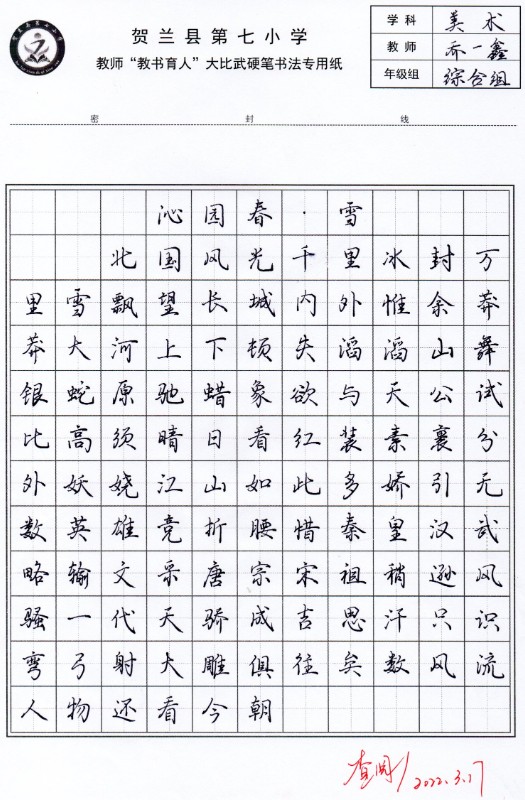 贺兰县第七小学
教师“教书育人”大比武硬笔书法专用纸
学科 美术
教师 乔一鑫
年级组 综合组
密 封 线
沁园春·雪
北国风光千里冰封万
里雪飘望长城内外惟余莽
莽大河上下顿失滔滔山舞
银蛇原驰蜡象欲与天公试
比高须晴日看红装素裹分
外妖娆江山如此多娇引无
数英雄竞折腰惜秦皇汉武
略输文采唐宗宋祖稍逊风
骚一代天骄成吉思汗只识
弯弓射大雕俱往矣数风流
人物还看今朝
查阅 2022.3.17